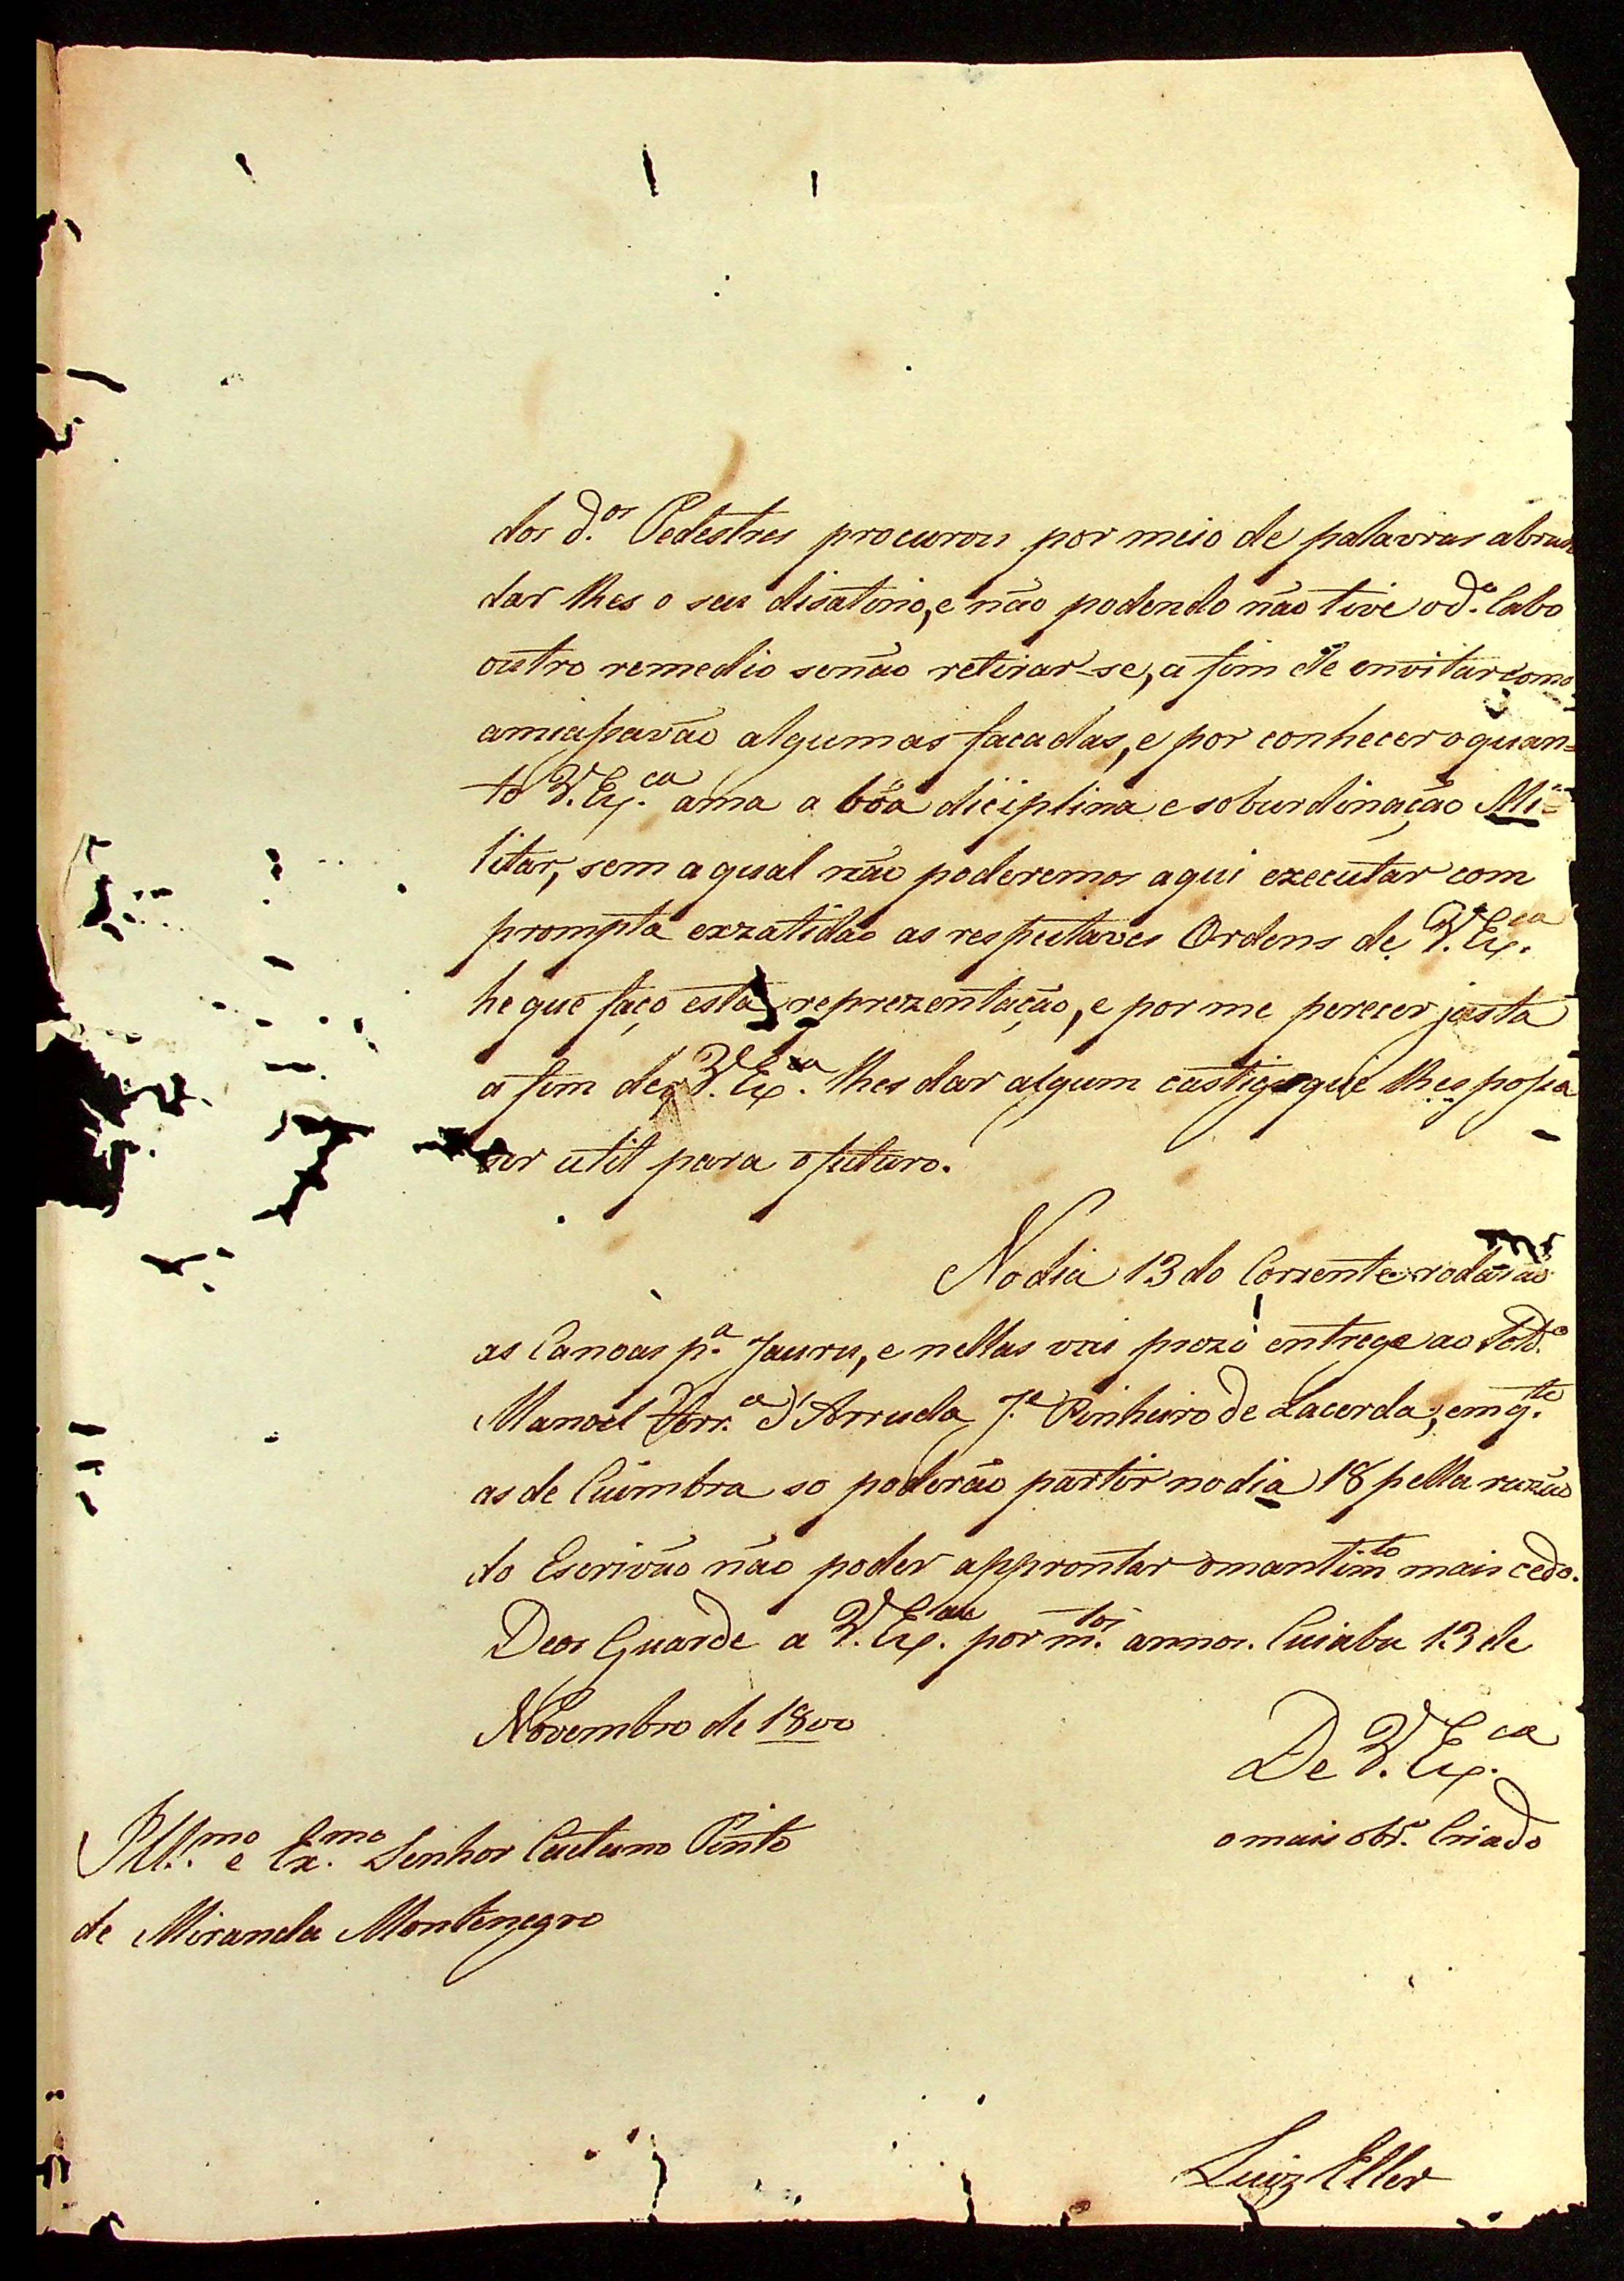 dos d.os Pedestres procurou por meio de palavras abran
dar lhes o seu disatino, e não podendo não tive o d.o Cabo
outro remedio senão retirar-se, a fim de envitar como
amiassavão algumas facadas, e por conhecer o quan=
to V. Ex.ca ama a bôa diciplina e soburdinação Mi=
litar, sem a qual não poderemos aqui executar com
prompta exzatidão as respeitaves Ordens de V. Ex.ca
he que faço esta reprezentação, e por me perecer justa
a fim de V. Ex.ca lhes dar algum castigo que lhes possa
ser util para o futuro.
No dia 13 do Corrente rodarão
as Canoas p.a Jauru, e nellas vai prezo entrege ao Sold.o
Manoel Ferr.a d'Arruda J.e Pinheiro de Lacerda, em q.to
as de Cuimbra so poderão partir no dia 18 pella razão
do Escrivão não poder approntar o mantim.to mais cedo.
Deos Guarde a V. Ex.cia por m.tos annos. Cuiaba 13 de
Novembro de 1800
De V. Ex.ca
o mais obd.o Criado
Ill.mo e Ex.mo Senhor Caetano Pinto
de Miranda Montenegro
Luiz Eller